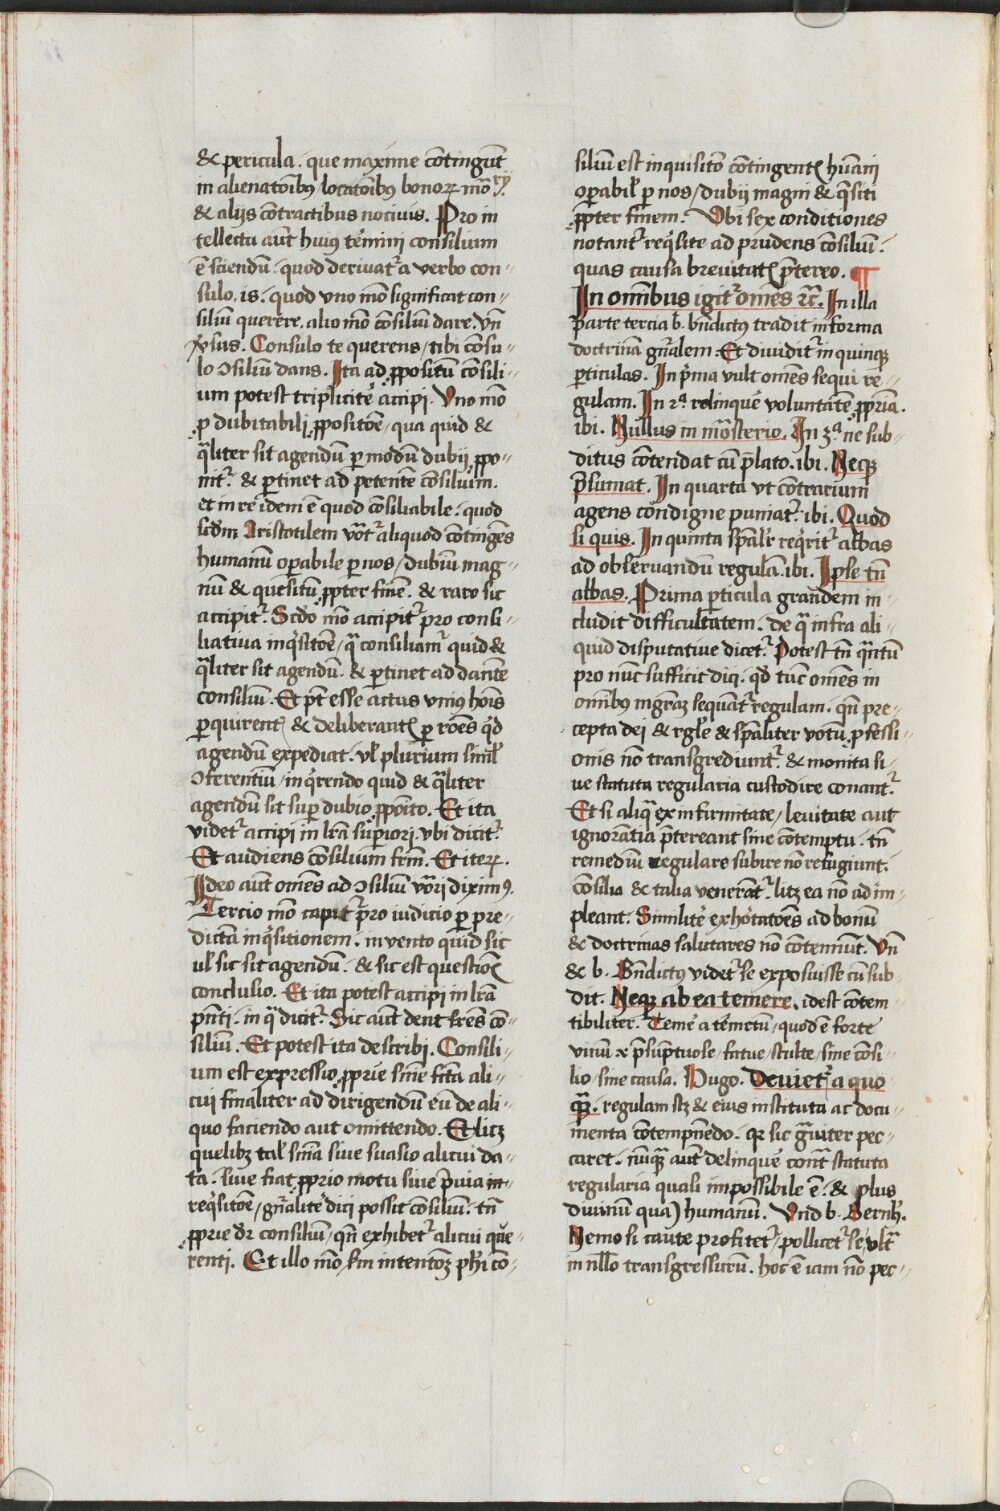 & pericula. que maxime cōtingūt
in alienatōibꝫ/locatōibꝫ bonoꝝ mōrꝫ
& alijs cōtractibus nociuis. Pro in
tellectu aūt huiꝰ tẽmini consilium
ē sciendū. quod deriuatᷣ a verbo con-
sulo.is. quod vno mō significat con-
siliū querẽre. alio mō cōsiliū dare. Vn̄
v̓sus. Consulo te querens/tibi cōsu-
lo ↄsiliū dans. Ita ad ꝓpositū cōsili-
um potest triplicitẽ accipi. Vno mō
ꝓ dubitabili ꝓpositōe, qua quid &
q̄liter sit agendū ꝑ modū dubij ꝓpo-
nitᷣ. & ꝑtinet ad petentē cōsiluim.
et in re idem ē quod cōsiliabile. quod
scd̄m Aristotilem vōtᷣ aliquod cōtingēs
humanū oꝑabile ꝑ nos/dubiū mag-
nū & quesitū ꝓpter finē. & raro sic
accipitᷣ. Scd̄o mō accipitᷣ pro consi-
liatiua inq̓sitōe, q̄ consiliamᷣ quid &
q̄liter sit agendū. & ꝑtinet ad dantē
consiliū. Et pt̄ esse actus vniꝰ hoīs
ꝑquirentꝭ & deliberantꝭ ꝑ rōēs q̓d
agendū expediat. vl̓ plurium siml̓
ↄferentiū/in q̓rendo quid & q̄liter
agendū sit sup̱ dubio ꝓpōito. Et ita
videtᷣ accipi in lr̄a suꝑiorj. vbi dicitᷣ.
Et audiens cōsilium frm̄. Et iteꝝ.
Ideo aūt omēs ad ↄsiliū vōri diximꝰ.
Tercio mō capitᷣ pro iudicio ꝑ pre-
dictā inq̓sitionem. inuento quid sic
ul̓ sic sit agendū. & sic est questiōꝭ
conclusio. Et ita potest accipi in lr̄a
pn̄ti. in q̄ dicitᷣ. Sic aūt dent fr̄es cō-
siliū. Et potest ita describj. Consili-
um est expressio ꝓprie sine fictā ali-
cui finaliter ad dirigendū eū de ali-
quo faciendo aut omittendo. Et licꝫ
quelibꝫ tal̓ sn̄ia siue suasio alicui da-
ta. siue fiat ꝓprio motu siue p̄uia in-
req̓sitōe, gn̄alitẽ dicj possit cōsiliū. tn̄
ꝓprie dr̄ consiliū, qn̄ exhibetᷣ alicui que-
renti. Et illo mō fm intentōꝫ ph̓i cō-
siliū est inquisitō cōtingentꝭ hūani
oꝑabil̓ ꝑ nos/dubij magni & q̄siti
ꝓpter finem. Vbi sex conditiones
notantᷣ req̓site ad prudens cōsiliū.
quas causa breuitatꝭ p̄tereo. ¶
In omībus igitᷣ omēs ⁊c̄. In illa
parte tercia b. bn̄dictꝰ tradit in forma
doctrinā gn̄alem. Et diuiditᷣ in quinqꝫ
ꝑticulas. In p̓ma vult omēs sequi re-
gulam. In 2ᵃ relinquẽ voluntatē ꝓpriā.
ibi. Nullus in mōsterio. In 3ᵃ ne sub-
ditus cōtendat cū p̄lato. ibi. Neqꝫ
p̄sumat. In quarta vt cōtrarium
agens condigne puniatᷣ. ibi. Quod
si quis. In quinta sp̄al̓r req̓ritᷣ abbas
ad obseruandū regulā. ibi. Ipse tn̄
abbas. Prima ꝑticula grandem in-
cludit difficultatem. de q̄ infra ali-
quid disputatiue dicetᷣ. Potest tn̄ q̄ntū
pro nūc sufficit dicj. qd̓ tūc omēs in
omībꝫ mgrāꝫ sequātᷣ regulam. qn̄ pre-
cepta dej & rgl̓e & sp̄aliter votū ꝓfessi-
onis nō transgrediuntᷣ. & monita si-
ue statuta regularia custodire conantᷣ.
Et si aliq̄ ex infirmitate/leuitate aut
ignorātia p̄tereant sine cōtemptu. tn̄
remediū regulare subire nō refugiunt.
Cōsilia & talia venerātᷣ. licꝫ ea nō adim-
pleant. Similitẽ exhortatōēs ad bonū
& doctrinas salutares nō cōtemnūt. Vn̄
& b. Bn̄dictꝰ videtᷣ se exposuisse cū sub-
dit. Neqꝫ ab ea temere. idest cōtem
tibiliter. Temẽ a temetū, quod ē forte
vinū x p̄sūptuose/fatue/stulte/sine cōsi-
lio/sine causa. Hugo. Deuietᷣ a quo
qꝫ. regulam scꝫ & eius instituta ac docu-
menta cōtempnēdo. qꝛ sic g̓uiter pec-
caret. nūqꝫ aūt delinquẽ cont̄ statuta
regularia quasi impossibile ē. & plus
diuinū qua) humanū. Vnd b. Bernh̓.
Nemo si caute profitetᷣ, pollicetᷣ se vlt̄
in nllo transgressurū. hoc ē iam nō pec-